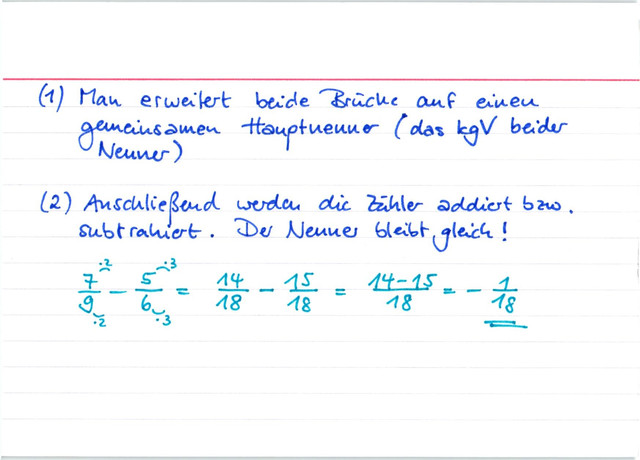 (1) Man erweitert beide Brüche auf einen
gemeinsamen Hauptnenner (das kgV beider
Nenner)
(2) Anschließend werden die Zähler addiert bzw.
subtrahiert. Der Nenner bleibt gleich!
7/9 (·2 ·2) − 5/6 (·3 ·3) = 14/18 − 15/18 = 14−15/18 = − 1/18